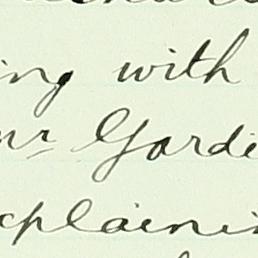 ing with
mr Gardi
xplainin